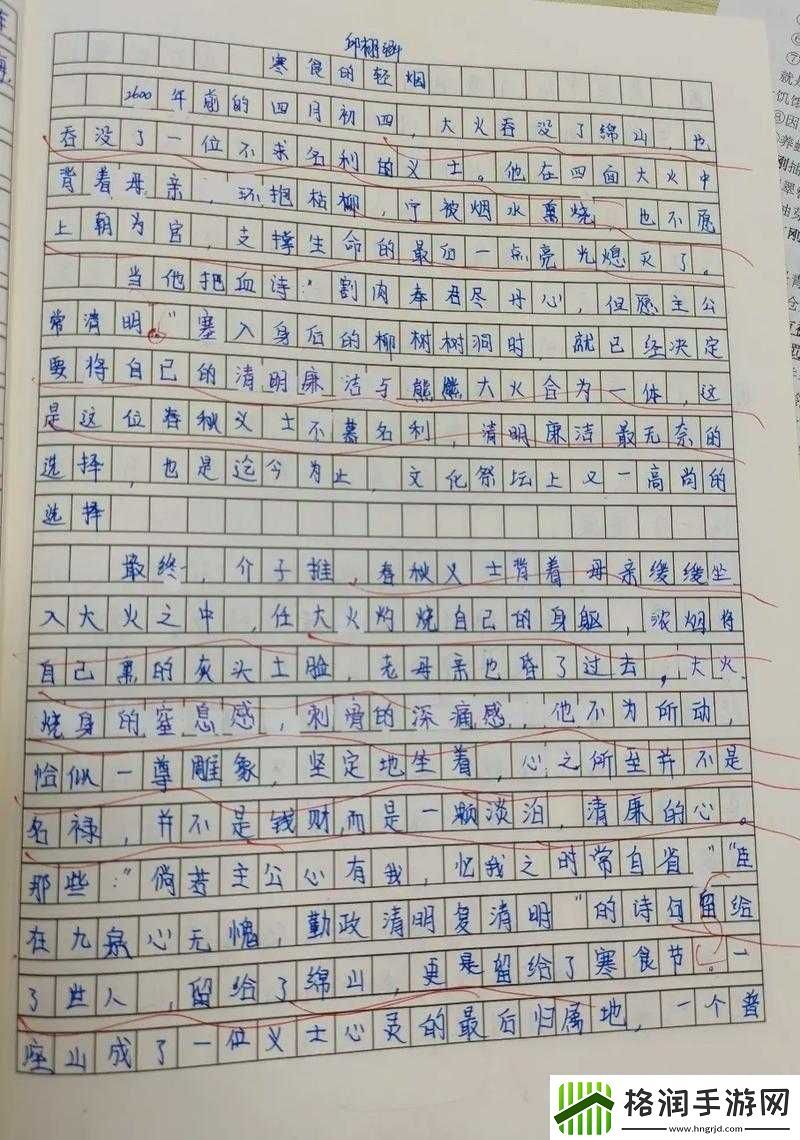 邱栩
寒食的轻烟
2600年前的四月初四，大火吞没了绵山，也
吞没了一位不求名利的义士。他在四面大火中
背着母亲，环抱枯柳，宁被烟火熏烧，也不愿
上朝为官，支撑生命的最后一点亮光熄灭了。
当他把血诗："割肉奉君尽丹心，但愿主公
常清明。"塞入身后的柳树树洞时，就已经决定
要将自己的清明廉洁与熊熊大火合为一体，这
是这位春秋义士不慕名利，清明廉洁最无奈的
选择，也是迄今为止，文化祭坛上又一高尚的
选择
最终，介子推，春秋义士背着母亲缓缓坐
入大火之中，任大火灼烧自己的身躯，浓烟将
自己熏的灰头土脸，老母亲也昏了过去，大火
烧身的窒息感，刺骨的深痛感，他不为所动，
恰似一尊雕象，坚定地坐着，心之所至并不是
名禄，并不是钱财，而是一颗淡泊，清廉的心。
那些："倘若主公心有我，忆我之时常自省""臣
在九泉心无愧，勤政清明复清明"的诗句留给
了世人，留给了绵山，更是留给了寒食节。一
座山成了一位义士心灵的最后归属地，一个普
⑥
⑦
就
饥饿
⑧因
养蚕
刚抽
翠
刚
格润手游网
www.hngrjd.com